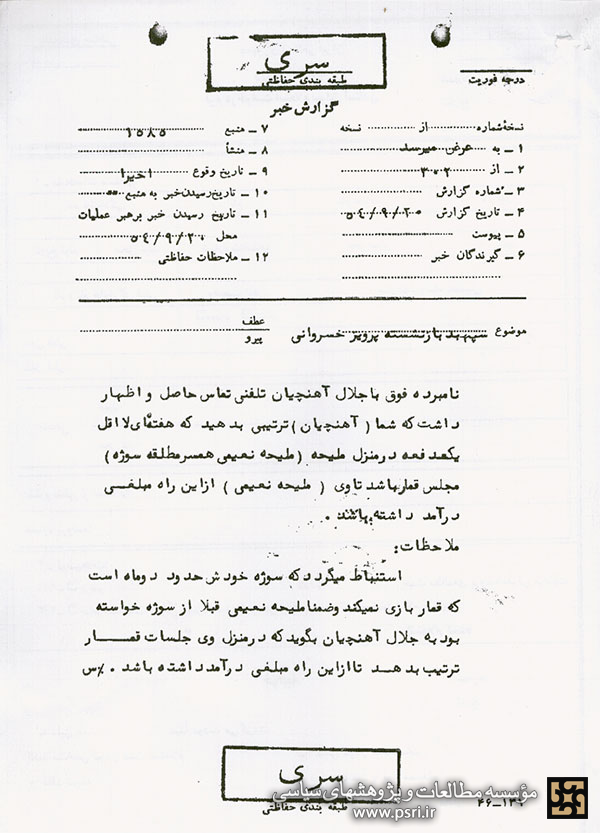 سری
طبقه بندی حفاظتی
درجه فوریت
گزارش خبر
نسخهٔ شماره ........ از ........ نسخه
۱ـ به عرض میرسد
۲ـ از ۳۰۲
۳ـ شماره گزارش
۴ـ تاریخ گزارش ۵۴/۹/۲۰
۵ـ پیوست
۶ـ گیرندگان خبر
۷ـ منبع ۱۵۸۵
۸ـ منشأ
۹ـ تاریخ وقوع اخیرا
۱۰ـ تاریخ رسیدن خبر به منبع ""
۱۱ـ تاریخ رسیدن خبر برهبر عملیات
محل ۵۴/۹/۲۰
۱۲ـ ملاحظات حفاظتی
موضوع سپهبد بازنشسته پرویز خسروانی
عطف
پیرو
نامبرده فوق با جلال آهنچیان تلفنی تماس حاصل و اظهار
داشت که شما (آهنچیان) ترتیبی بدهید که هفته‌ای لااقل
یکدفعه در منزل ملیحه (ملیحه نعیمی همسر مطلقه سوژه)
مجلس قمار باشد تا وی (ملیحه نعیمی) از این راه مبلغی
درآمد داشته باشد.
ملاحظات:
استنباط میگردد که سوژه خودش حدود دوماه است
که قمار بازی نمیکند وضمنا ملیحه نعیمی قبلا از سوژه خواسته
بود به جلال آهنچیان بگوید که درمنزل وی جلسات قمار
ترتیب بدهد تا از این راه مبلغی درآمد داشته باشد. %س
سری
طبقه بندی حفاظتی
مؤسسه مطالعات و پژوهشهای سیاسی
www.psri.ir